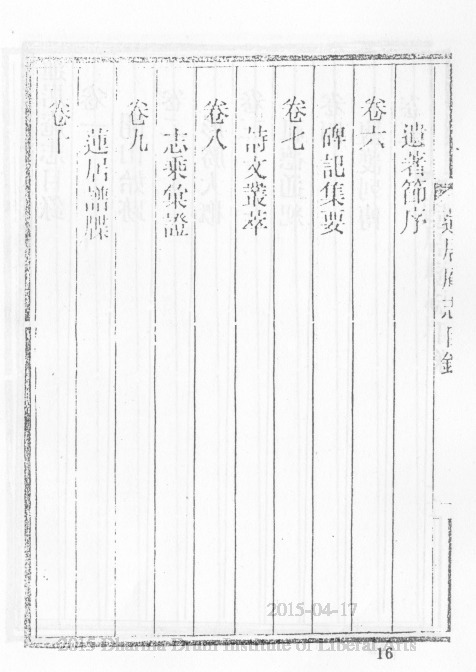 蓮居庵志目錄
遺著節序
卷六
碑記集要
卷七
詩文叢萃
卷八
志乘彙證
卷九
蓮居譜牒
卷十
2015-04-17
©2015 Dharma Drum Institute of Liberal Arts
16